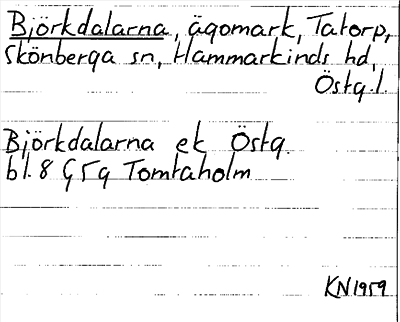 Björkdalarna, ägomark, Tatorp,
Skönberga sn, Hammarkinds hd,
Östg.l.
Björkdalarna ek Östg.
bl. 8 Ç5g Tomtaholm
KN1959